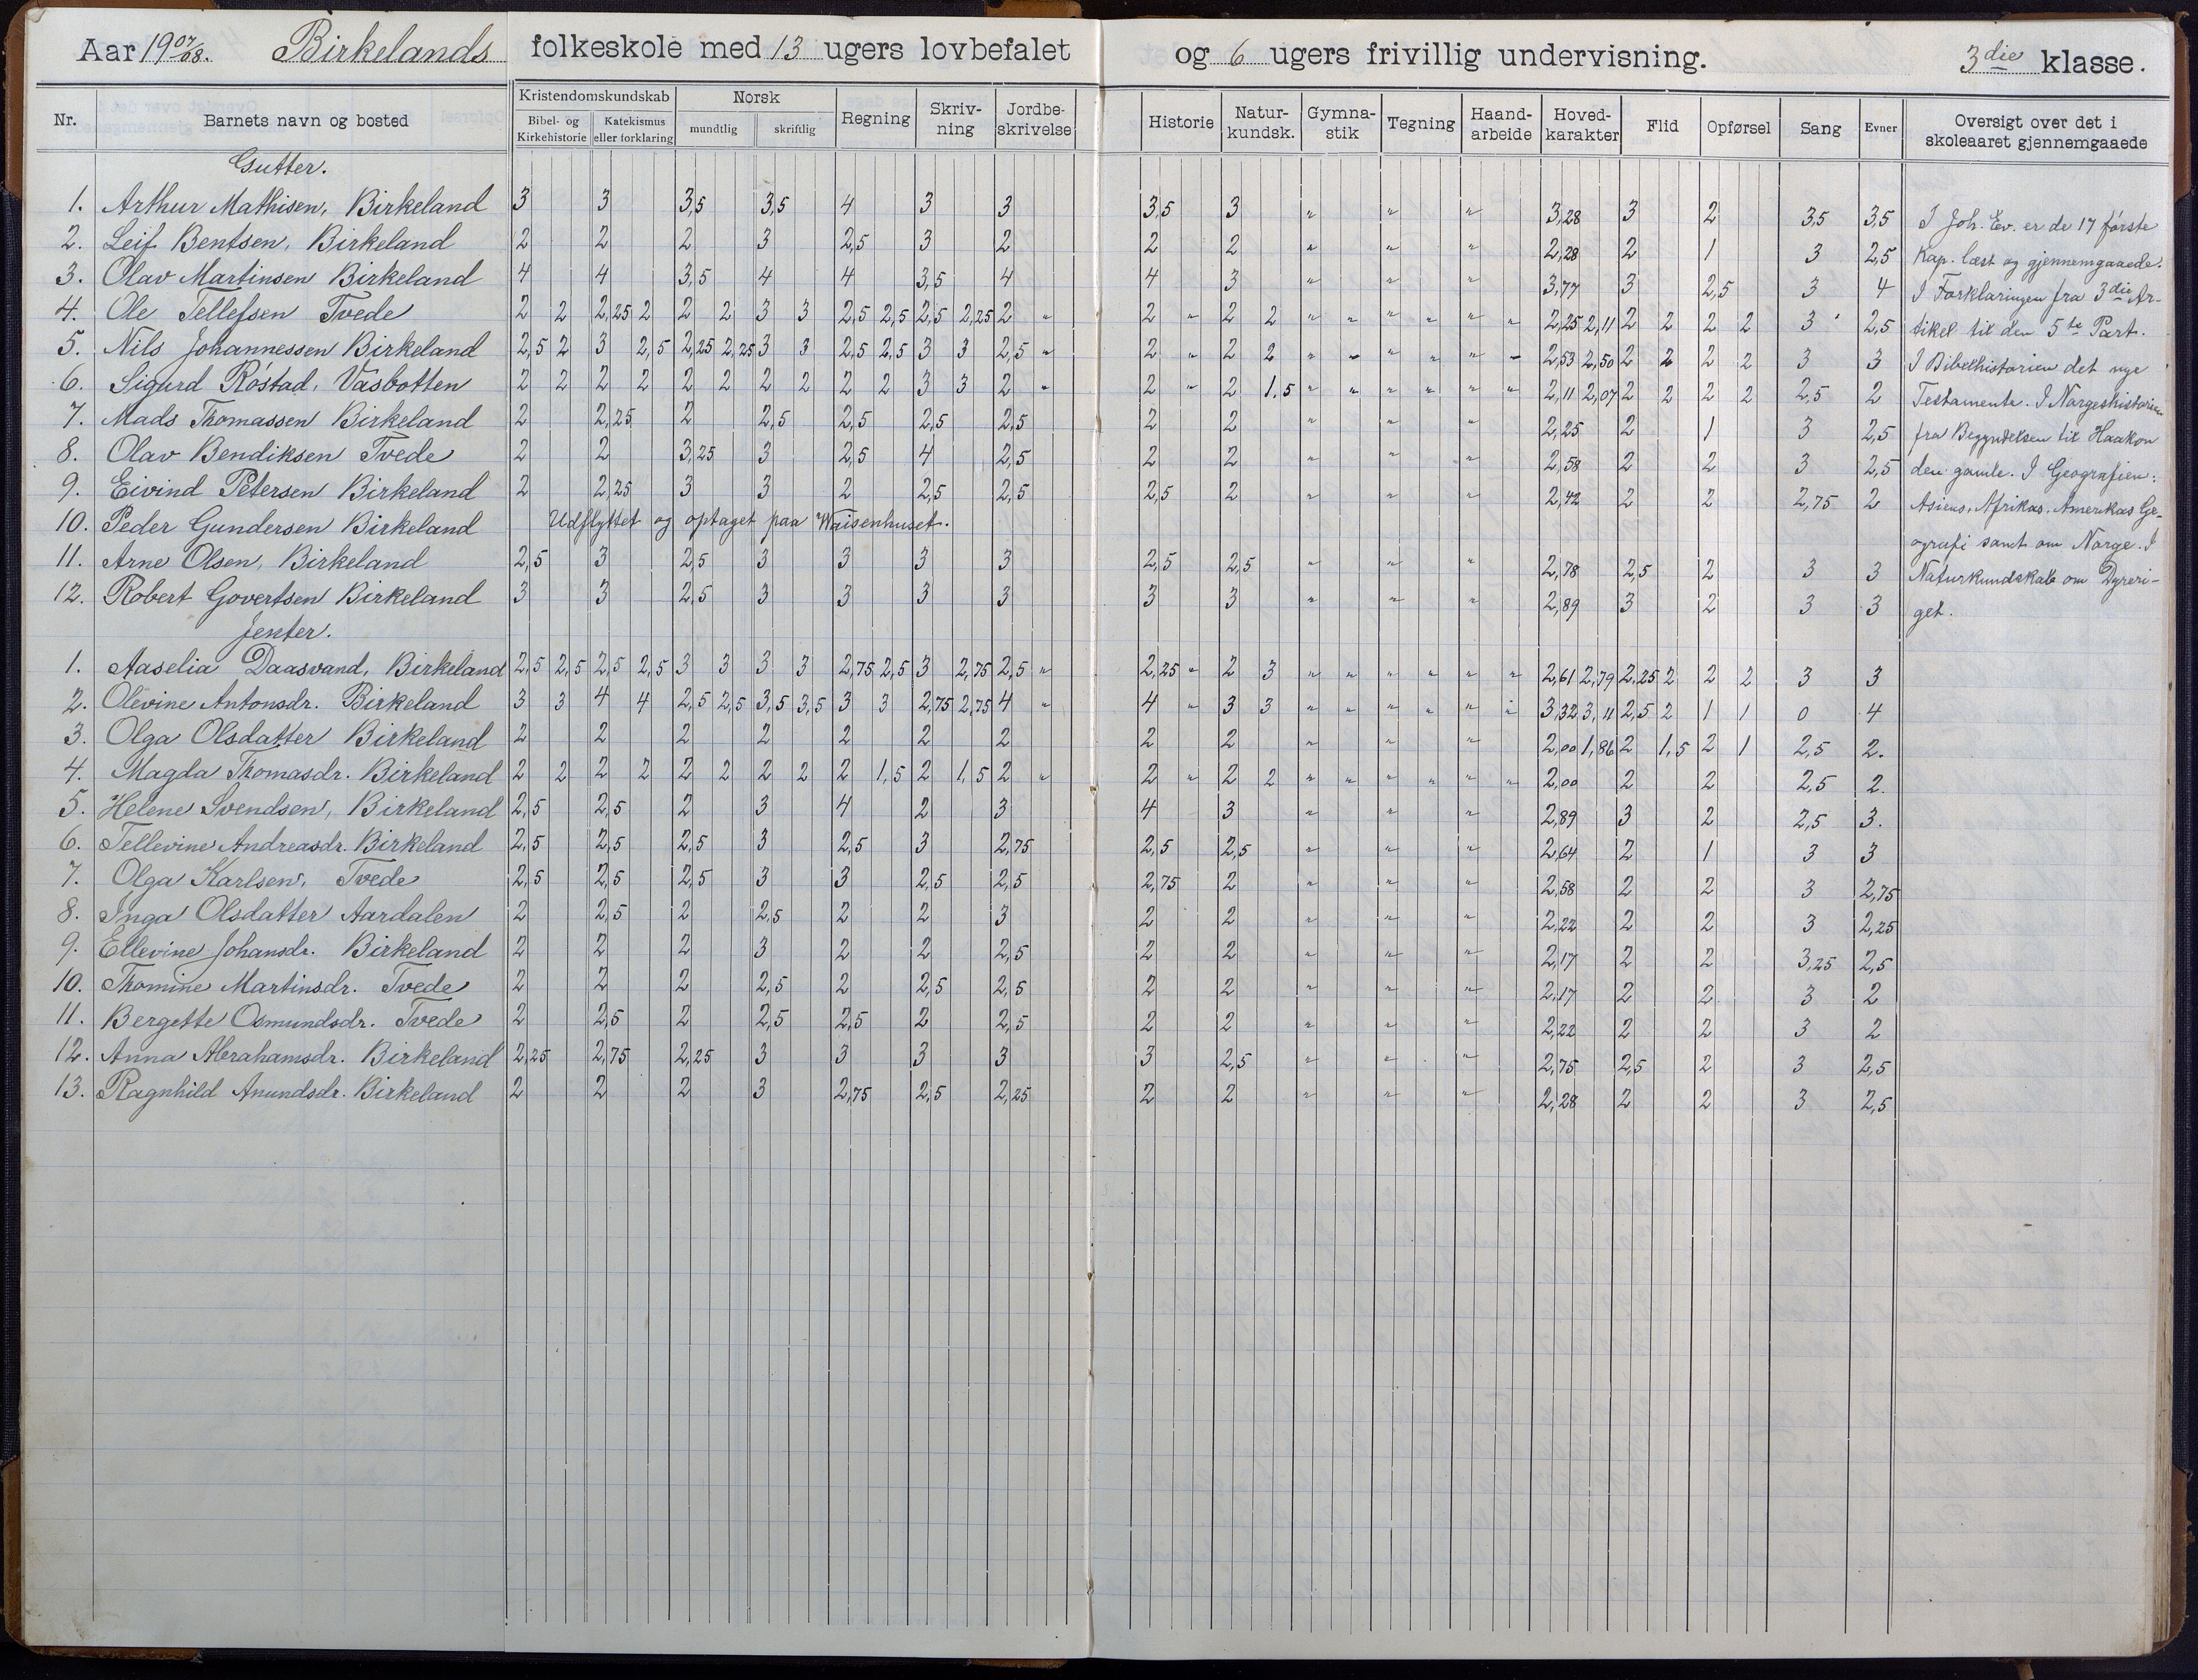 Aar 19 07/08. Birkelands folkeskole med 13 ugers lovbefalet og 6 ugers frivillig undervisning. 3die klasse.
Nr. Barnets navn og bosted Kristendomskundskab Bibel- og Kirkehistorie Katekismus eller forklaring Norsk mundtlig skriftlig Regning Skriv-ning Jordbe-skrivelse Historie Natur-kundsk. Gymna-stik Tegning Haand-arbeide Hoved-karakter Flid Opførsel Sang Evner Oversigt over det i skoleaaret gjennemgaaede
Gutter.
1. Arthur Mathisen, Birkeland 3 3 3,5 3,5 4 3 3 3,5 3 " " " 3,28 3 2 3,5 3,5
2. Leif Bentsen, Birkeland 2 2 2 3 2,5 3 2 2 2 " " " 2,28 2 1 3 2,5
3. Olav Martinsen Birkeland 4 4 3,5 4 4 3,5 4 4 3 " " " 3,77 3 2,5 3 4
4. Ole Tellefsen Tvede 2 2 2,25 2 2 2 3 3 2,5 2,5 2,5 2,25 2 " 2 " 2 2 " " " " " " 2,25 2,11 2 2 2 2 3 2,5
5. Nils Johannessen Birkeland 2,5 2 3 2,5 2,25 2,25 3 3 2,5 2,5 3 3 2,5 " 2 " 2 2 " " " " " " 2,53 2,50 2 2 2 2 3 3
6. Sigurd Röstad, Vasbotten 2 2 2 2 2 2 2 2 2 2 3 3 2 " 2 " 2 1,5 " " " " " " 2,11 2,07 2 2 2 2 2,5 2
7. Mads Thomassen Birkeland 2 2,25 2 2,5 2,5 2,5 2,5 2 2 " " " 2,25 2 1 3 2,5
8. Olav Bendiksen Tvede 2 2 3,25 3 2,5 4 2,5 2 2 " " " 2,58 2 2 3 2,5
9. Eivind Petersen Birkeland 2 2,25 3 3 2 2,5 2,5 2,5 2 " " " 2,42 2 2 2,75 2
10. Peder Gundersen Birkeland Udflyttet og optaget paa Waisenhuset.
11. Arne Olsen, Birkeland 2,5 3 2,5 3 3 3 3 2,5 2,5 " " " 2,78 2,5 2 3 3
12. Robert Govertsen Birkeland 3 3 2,5 3 3 3 3 3 3 " " " 2,89 3 2 3 3
Jenter.
1. Aaselia Daasvand, Birkeland 2,5 2,5 2,5 2,5 3 3 3 3 2,75 2,5 3 2,75 2,5 " 2,25 " 2 3 " " " " " " 2,61 2,79 2,25 2 2 2 3 3
2. Olevine Antonsdr. Birkeland 3 3 4 4 2,5 2,5 3,5 3,5 3 3 2,75 2,75 4 " 4 " 3 3 " " " " " " 3,32 3,11 2,5 2 1 1 0 4
3. Olga Olsdatter Birkeland 2 2 2 2 2 2 2 2 2 " " " 2,00 1,86 2 1,5 2 1 2,5 2.
4. Magda Thomasdr. Birkeland 2 2 2 2 2 2 2 2 2 1,5 2 1,5 2 " 2 " 2 2 " " " " " " 2,00 2 2 2,5 2.
5. Helene Svendsen, Birkeland 2,5 2,5 2 3 4 2 3 4 3 " " " 2,89 3 2 2,5 3.
6. Tellevine Andreasdr. Birkeland 2,5 2,5 2,5 3 2,5 3 2,75 2,5 2,5 " " " 2,64 2 1 3 3
7. Olga Karlsen, Tvede 2,5 2,5 2,5 3 3 2,5 2,5 2,75 2 " " " 2,58 2 2 3 2,75
8. Inga Olsdatter Aardalen 2 2,5 2 2,5 2 2 3 2 2 " " " 2,22 2 2 3 2,25
9. Ellevine Johansdr. Birkeland 2 2 2 3 2 2 2,5 2 2 " " " 2,17 2 2 3,25 2,5
10. Thomine Martinsdr. Tvede 2 2 2 2,5 2 2,5 2,5 2 2 " " " 2,17 2 2 3 2
11. Bergette Osmundsdr. Tvede 2 2,5 2 2,5 2,5 2 2,5 2 2 " " " 2,22 2 2 3 2
12. Anna Abrahamsdr. Birkeland 2,25 2,75 2,25 3 3 3 3 3 2,5 " " " 2,75 2,5 2 3 2,5
13. Ragnhild Anundsdr. Birkeland 2 2 2 3 2,75 2,5 2,25 2 2 " " " 2,28 2 2 3 2,5
I Joh. Ev. er de 17 første
Kap. læst og gjennemgaaede.
I Forklaringen fra 3die Ar-
tikel til den 5te Part.
I Bibelhistorien det nye
Testamente. I Norgeshistorien
fra Begyndelsen til Haakon
den gamle. I Geografien:
Asiens, Afrikas, Amerikas Ge-
ografi samt om Norge. I
Naturkundskab om Dyreri-
get.